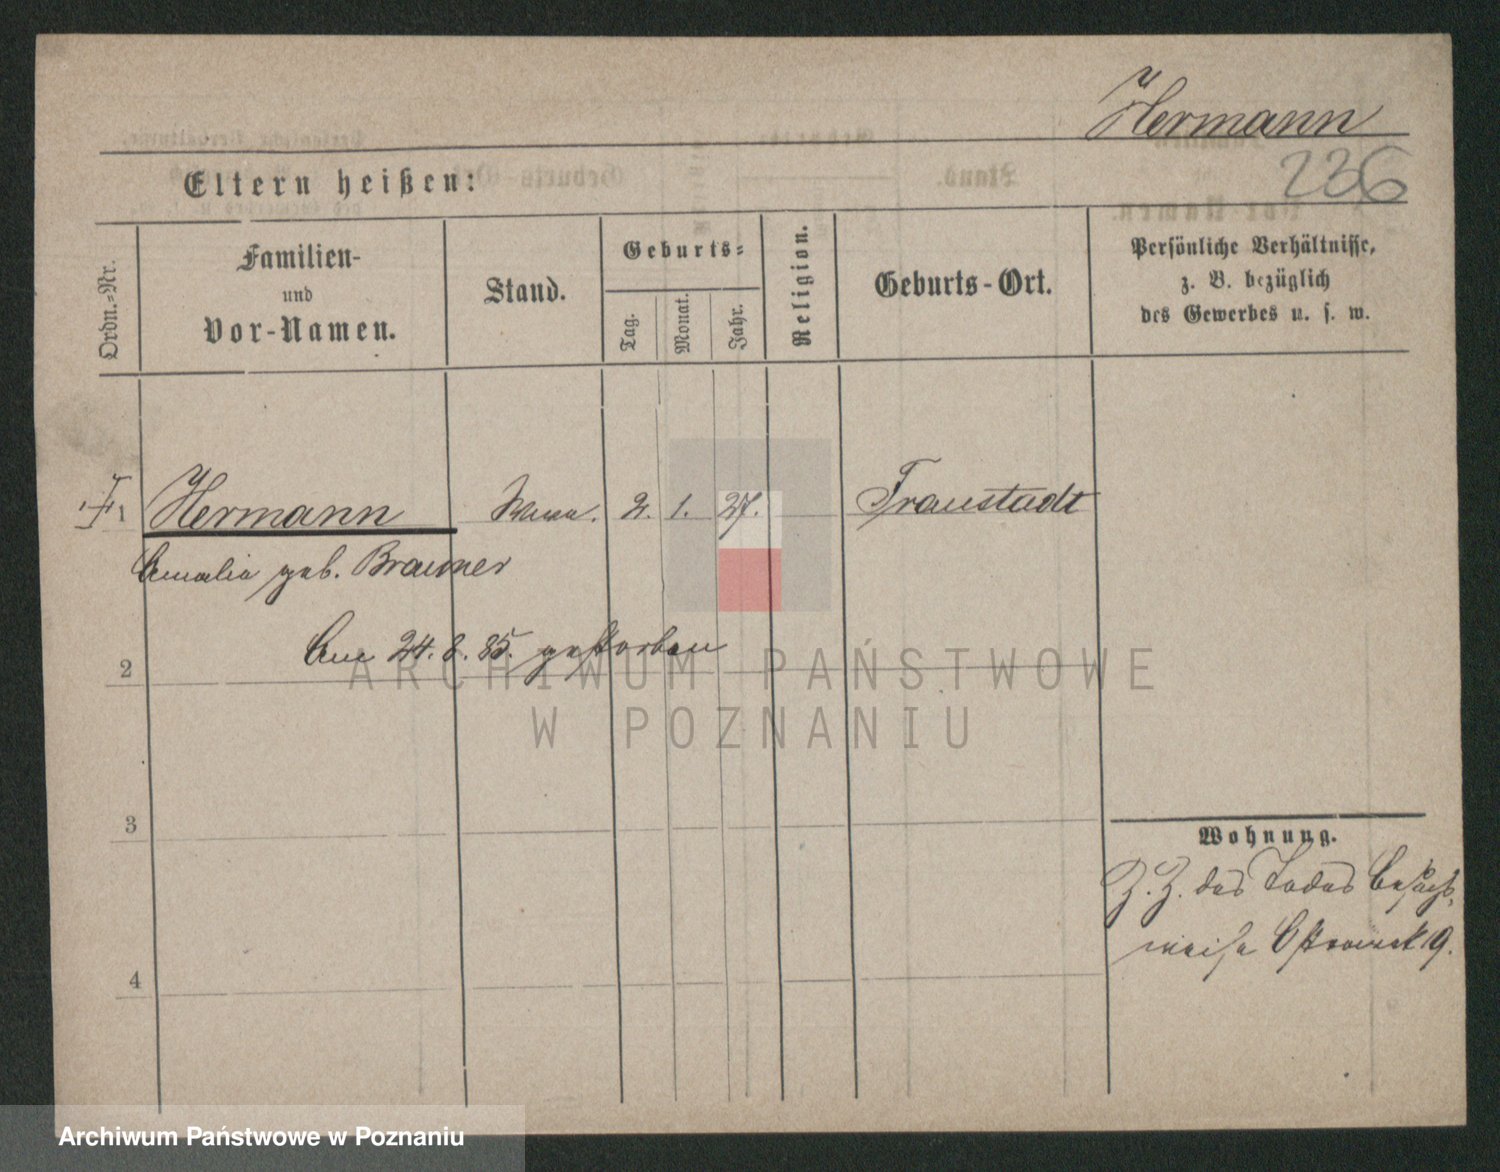 Hermann
236
Eltern heißen:
Ordn.-Nr.
Familien-
und
Vor-Namen.
Stand.
Geburts-
Tag.
Monat.
Jahr.
Religion.
Geburts-Ort.
Persönliche Verhältnisse,
z. B. bezüglich
des Gewerbes u. s. w.
1 Hermann 2. 1. 27. Fraustadt
Amalia geb. Brauner
Am 24. 8. 85. gestorben
2
3
4
Wohnung.
Z. Z. des Todes besuchs-
weise Ostrowek 9.
ARCHIWUM PAŃSTWOWE
W POZNANIU
Archiwum Państwowe w Poznaniu